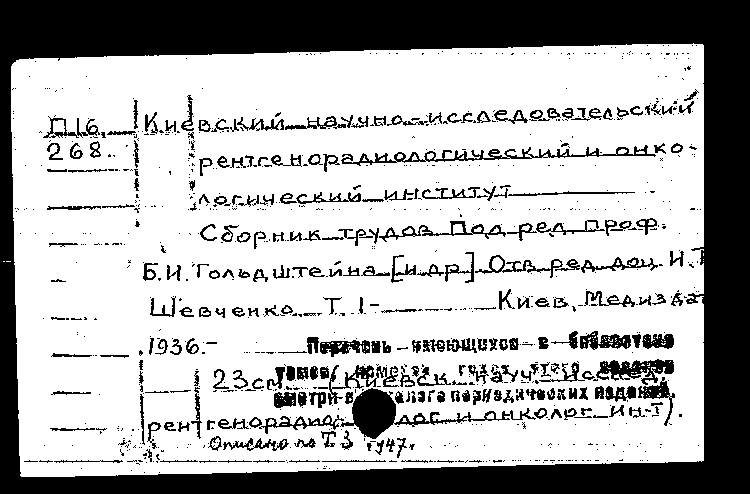 П16. Киевский научно-исследовательский
268. рентгенорадиологический и онко-
логический институт
Сборник трудов Под ред проф.
Б.И. Гольдштейна [и др] Отв ред доц И.Т
Шевченко Т. 1- Киев, Медиздат
1936.- Перечень имеющихся в библиотеке
томов, номеров, годов этого издания
23 см. (Киевск науч-исслед.
смотри в каталоге периодических изданий.
рентгенорадиолог и онколог ин-т).
Описано по Т.3 1947.